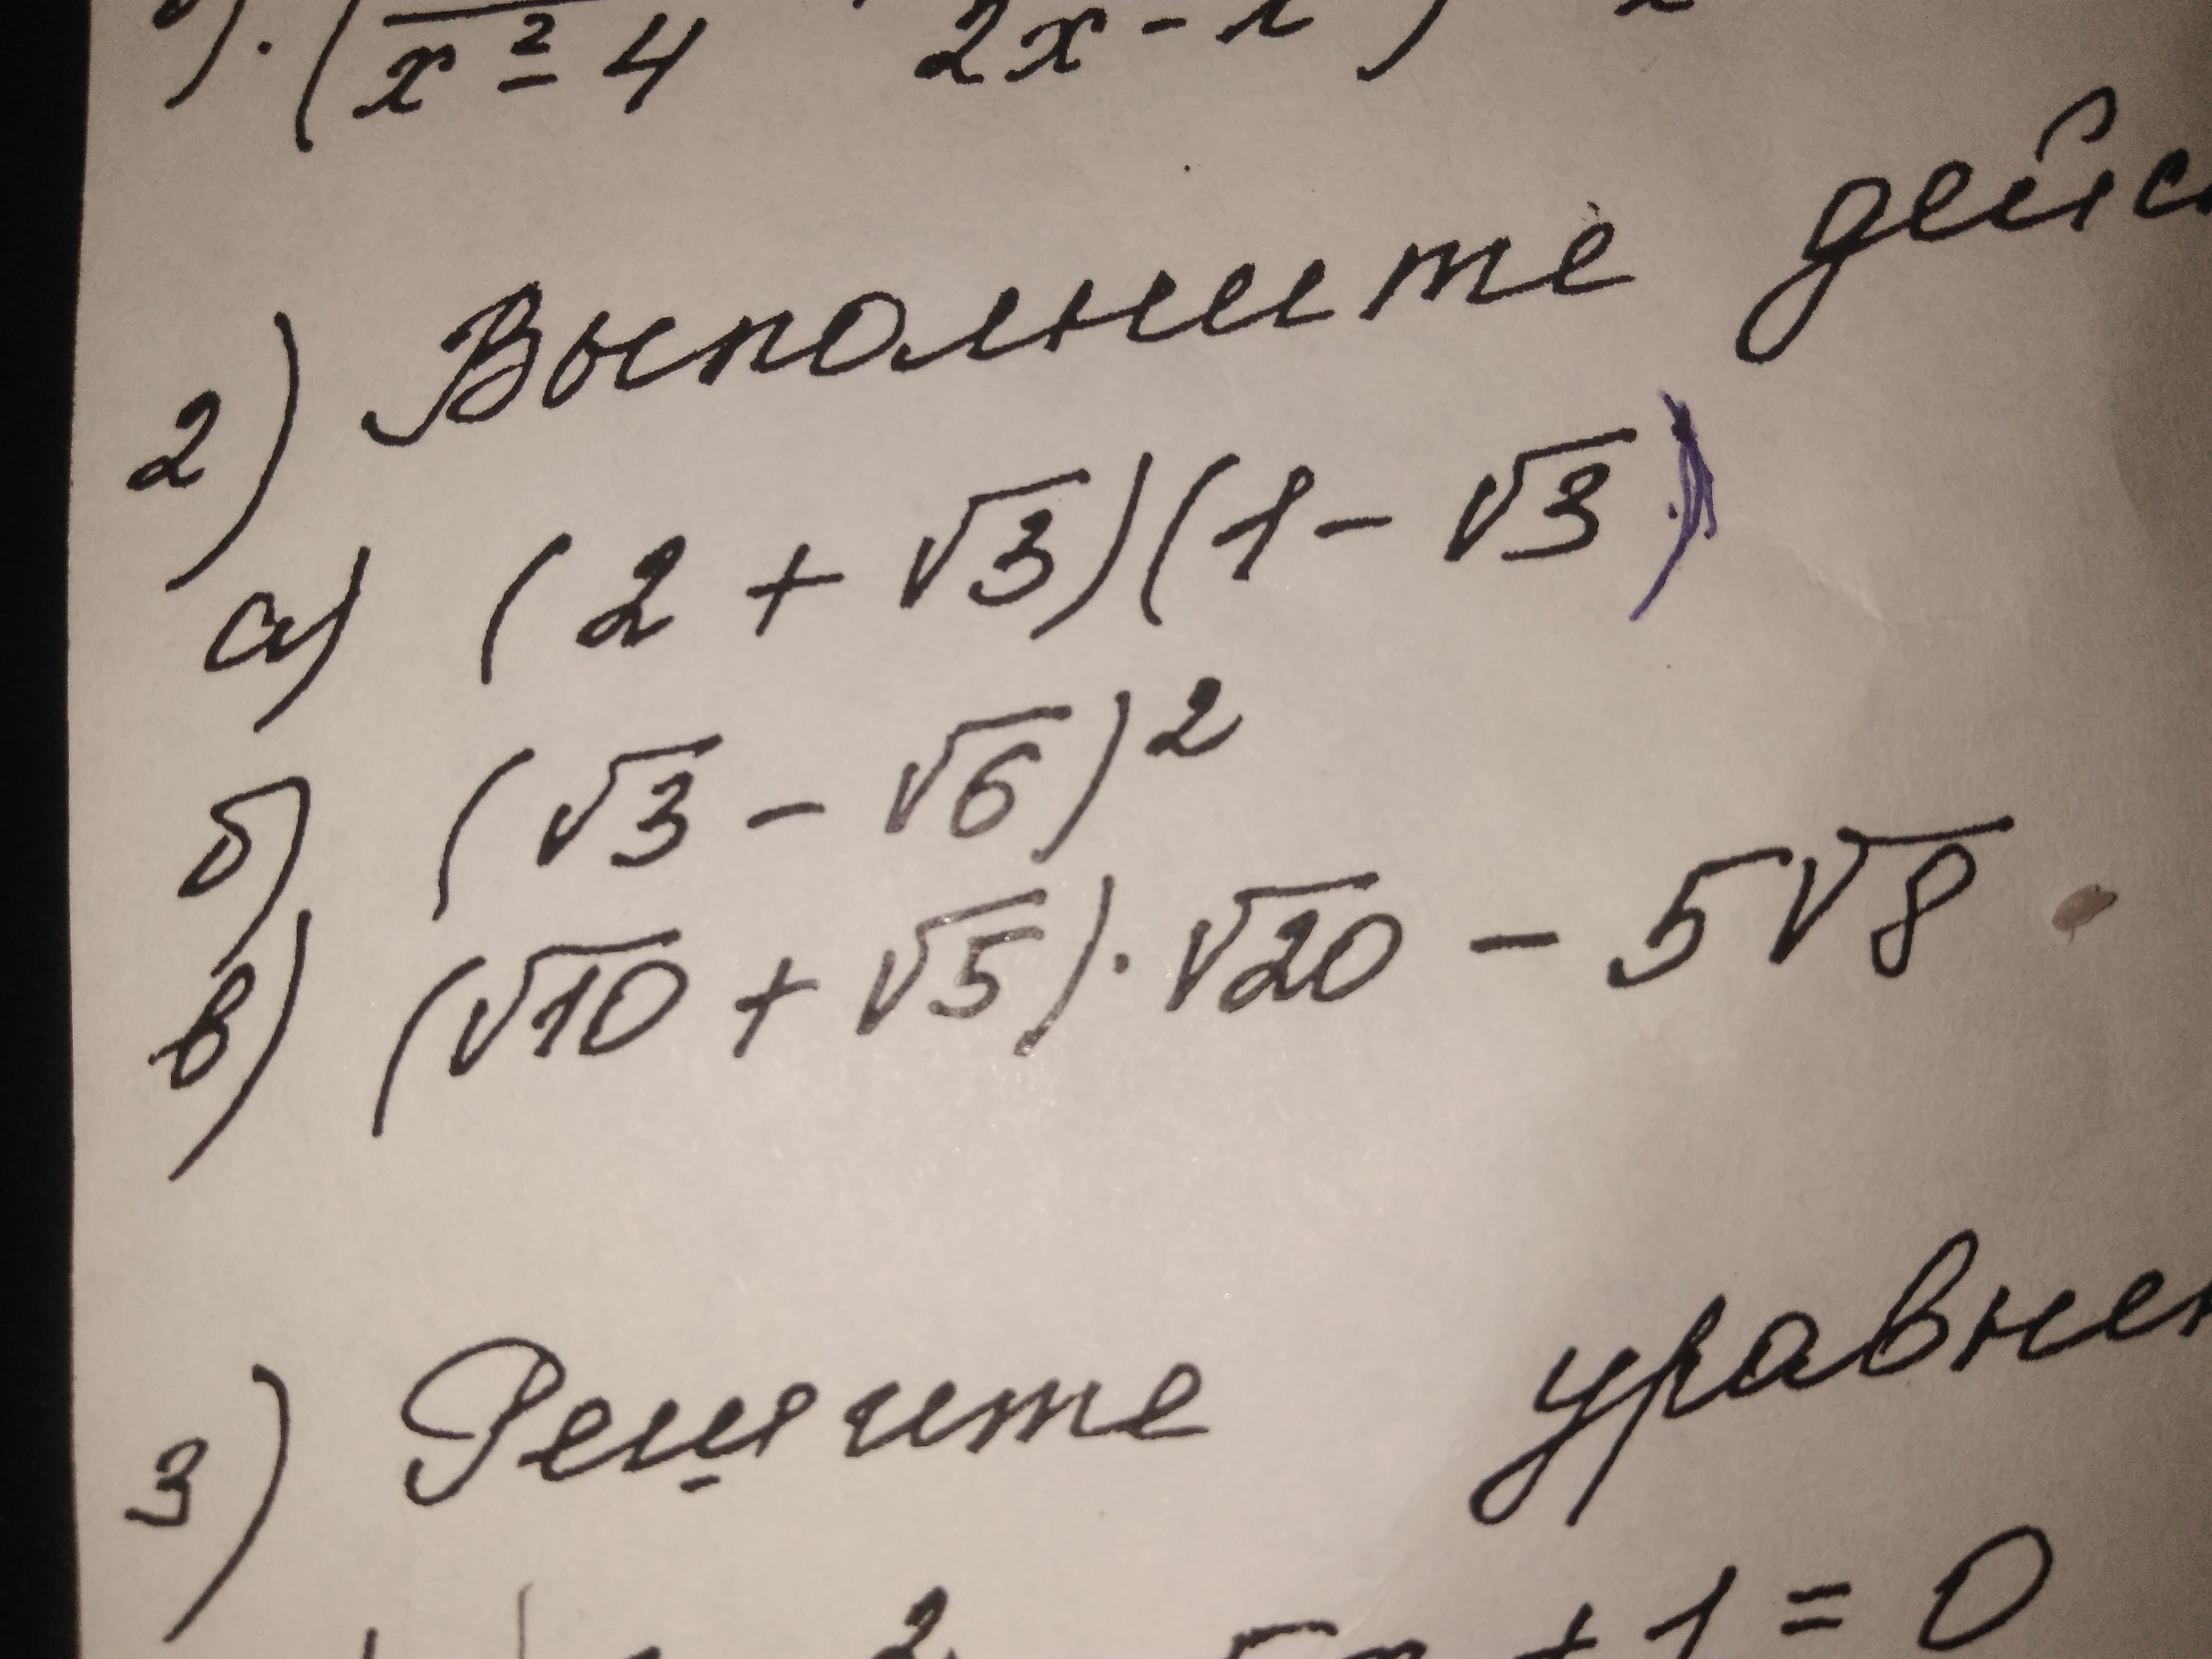 x² - 4 2x - x
2) Выполните дейс
а) (2 + √3)(1 - √3)
б) (√3 - √6)²
в) (√10 + √5) · √20 - 5√8
3) Решите уравнен
2 5x + 1 = 0